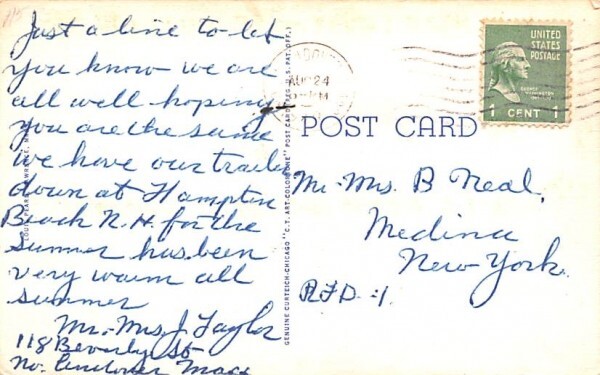 Just a line to let
you know we are
all well hoping
you are the same
we have our trailer
down at Hampton
Beach N.H. for the
summer has been
very warm all
summer
Mr. Mrs. J. Taylor
118 Beverly St
No. Andover Mass
GENUINE CURTEICH-CHICAGO "C.T. ART-COLORTONE" POST CARD (REG. U.S. PAT. OFF.)
AUG 24
PM
UNITED
STATES
POSTAGE
GEORGE
WASHINGTON
1 CENT 1
POST CARD
Mr. Mrs. B Neal,
Medina
New York.
R.F.D. #1